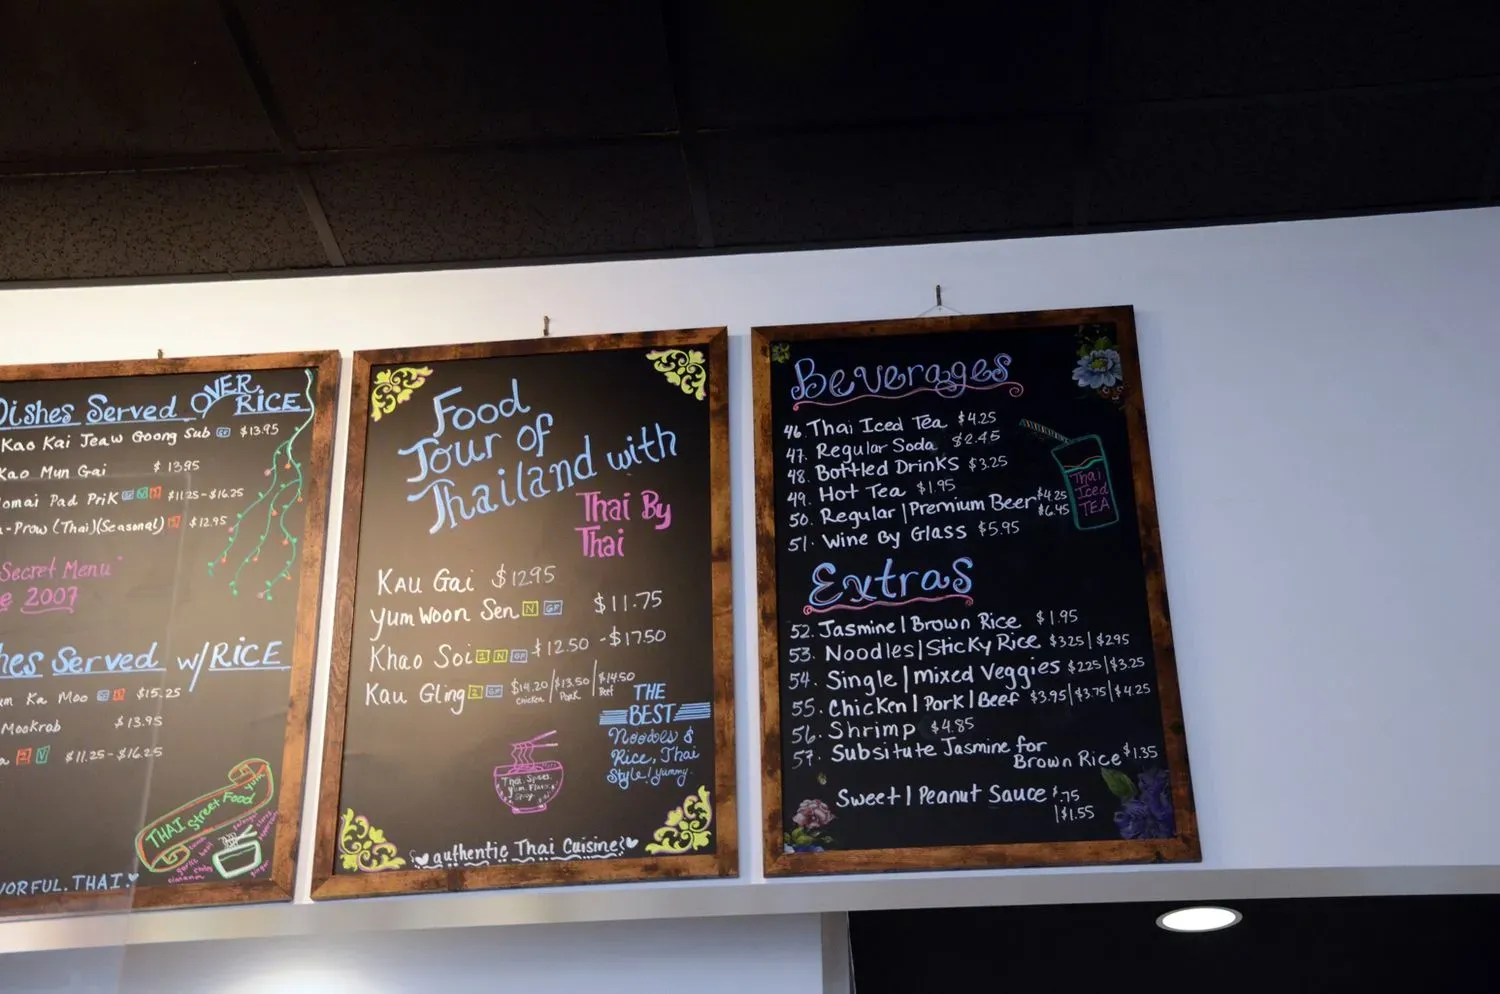 Dishes Served OVER RICE
Kao Kai Jeaw Goong Sub GF $13.95
Kao Mun Gai $13.95
Pad Prik GF V $11.25-$16.25
-Prow (Thai)(Seasonal) $12.95
Secret Menu
2007
Served w/RICE
Ka Moo GF $15.25
Mookrab $13.95
V $11.25-$16.25
THAI Street Food
THAI.
Food
Tour of
Thailand with
Thai By
Thai
Kau Gai $12.95
Yum Woon Sen N GF $11.75
Khao Soi N GF $12.50 -$17.50
Kau Gling GF $14.20/$13.50/$14.50
Chicken Pork Beef
THE
BEST
Noodles &
Rice, Thai
Style! Yummy.
Thai. Spices.
Yum. Flavor.
Spicy.
authentic Thai Cuisine
Beverages
46. Thai Iced Tea $4.25
47. Regular Soda $2.45
48. Bottled Drinks $3.25
49. Hot Tea $1.95
50. Regular|Premium Beer $4.25
$6.45
51. Wine By Glass $5.95
Thai
Iced
TEA
Extras
52. Jasmine|Brown Rice $1.95
53. Noodles|Sticky Rice $3.25|$2.95
54. Single|mixed Veggies $2.25|$3.25
55. Chicken|Pork|Beef $3.95|$3.75|$4.25
56. Shrimp $4.85
57. Subsitute Jasmine for
Brown Rice $1.35
Sweet|Peanut Sauce $.75
|$1.55